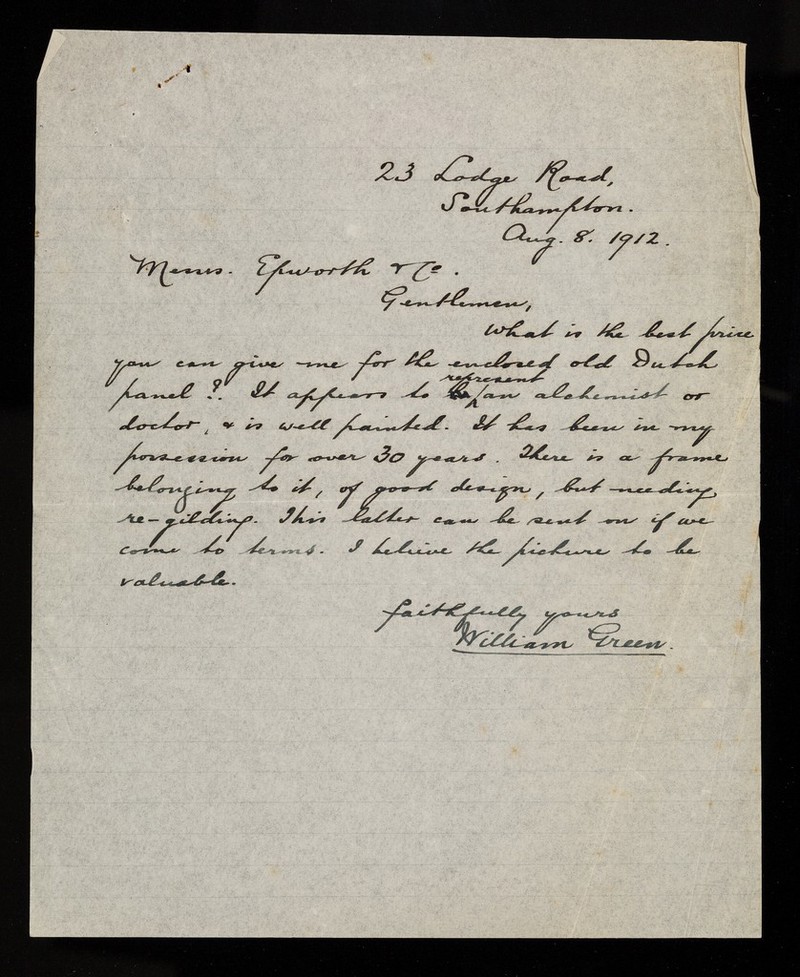 23 Lodge Road,
Southampton.
Aug. 8. 1912.
Messrs. Epworth & Co.
Gentlemen,
What is the best price
you can give me for the enclosed old Dutch
panel?. It appears to be represent an alchemist or
doctor, & is well painted. It has been in my
possession for over 30 years. There is a frame
belonging to it, of good design, but needing
re-gilding. This latter can be sent on if we
come to terms. I believe the picture to be
valuable.
faithfully yours
William Green.